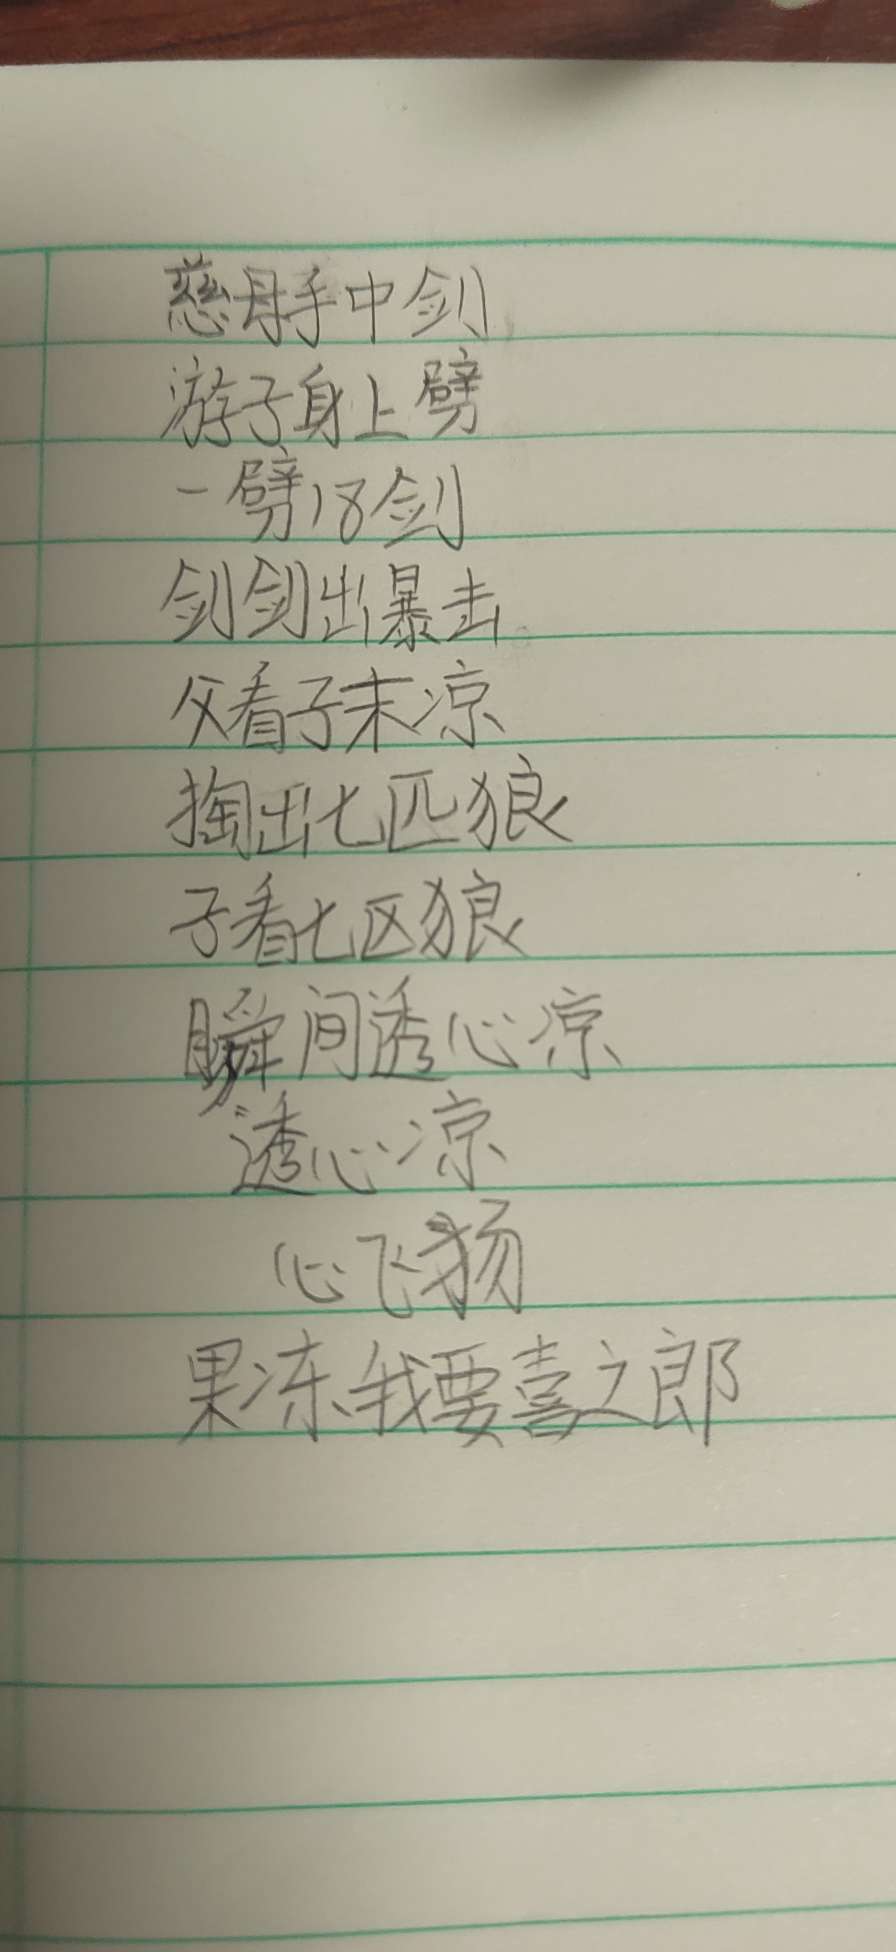 慈母手中剑
游子身上劈
一劈18剑
剑剑出暴击
父看子未凉
掏出七匹狼
子看七匹狼
瞬间透心凉
透心凉
心飞扬
果冻我要喜之郎